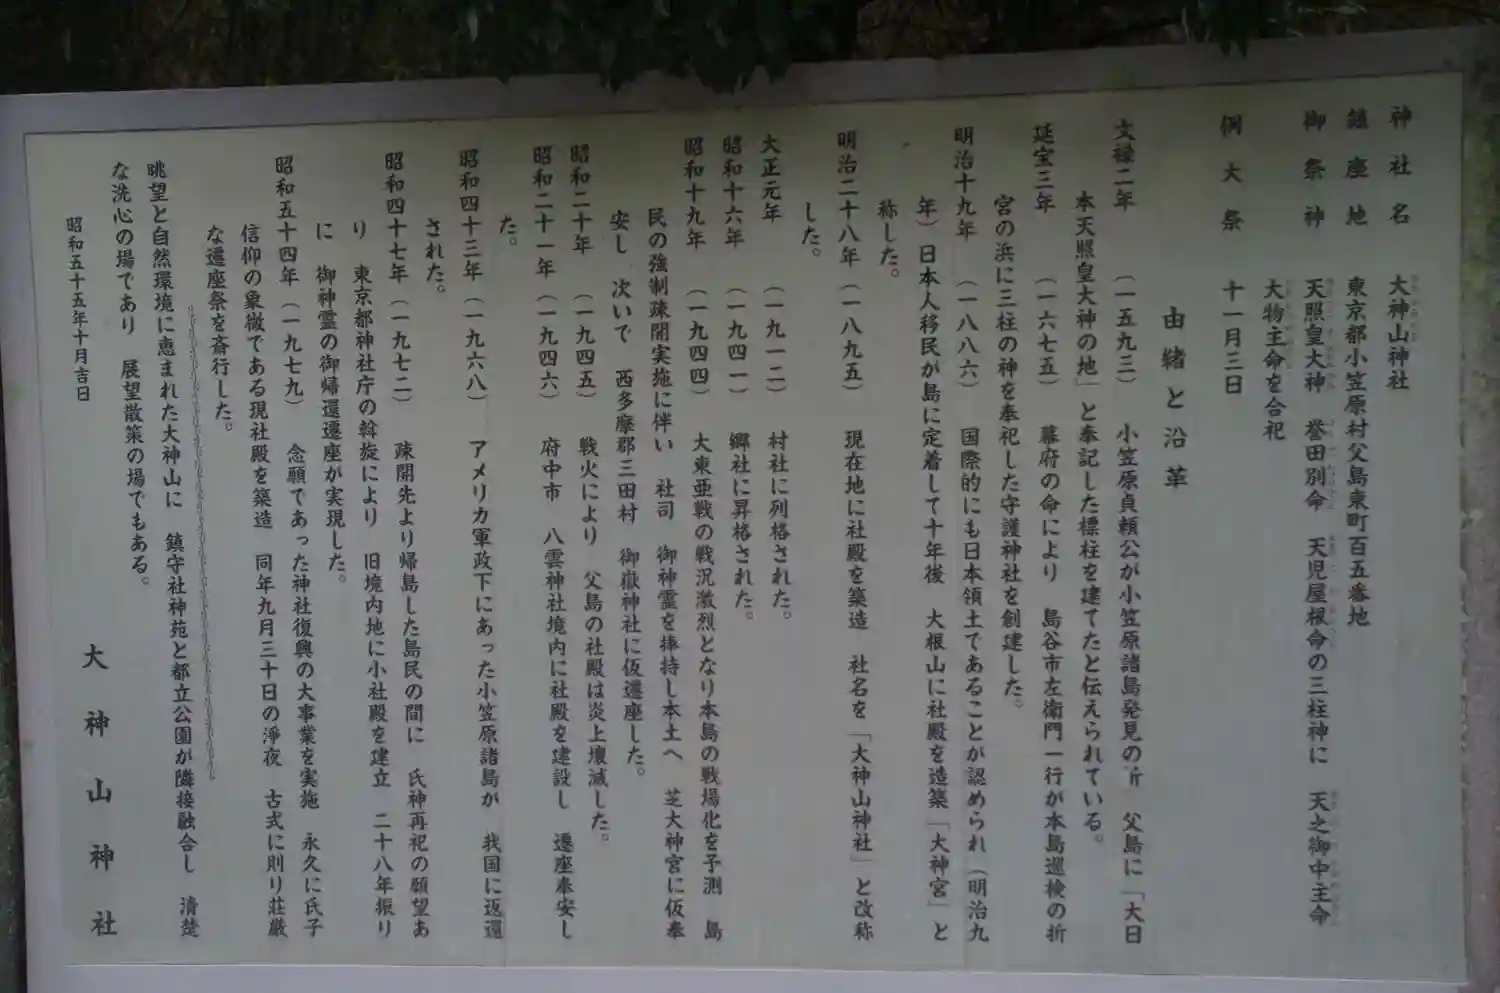 神社名　大神山神社
鎮座地　東京都小笠原村父島東町百五番地
御祭神　天照皇大神　誉田別命　天児屋根命の三柱神に　天之御中主命
大物主命を合祀
例大祭　十一月三日
由緒と沿革
文禄二年　（一五九三）　小笠原貞頼公が小笠原諸島発見の折　父島に「大日
本天照皇大神の地」と奉記した標柱を建てたと伝えられている。
延宝三年　（一六七五）　幕府の命により　島谷市左衛門一行が本島巡検の折
宮の浜に三柱の神を奉祀した守護神社を創建した。
明治十九年　（一八八六）　国際的にも日本領土であることが認められ（明治九
年）日本人移民が島に定着して十年後　大根山に社殿を造築「大神宮」と
称した。
明治二十八年（一八九五）　現在地に社殿を築造　社名を「大神山神社」と改称
した。
大正元年　（一九一二）　村社に列格された。
昭和十六年　（一九四一）　郷社に昇格された。
昭和十九年　（一九四四）　大東亜戦の戦況激烈となり本島の戦場化を予測　島
民の強制疎開実施に伴い　社司　御神霊を捧持し本土へ　芝大神宮に仮奉
安し　次いで　西多摩郡三田村　御嶽神社に仮遷座した。
昭和二十年　（一九四五）　戦火により　父島の社殿は炎上壊滅した。
昭和二十一年（一九四六）　府中市　八雲神社境内に社殿を建設し　遷座奉安し
た。
昭和四十三年（一九六八）　アメリカ軍政下にあった小笠原諸島が　我国に返還
された。
昭和四十七年（一九七二）　疎開先より帰島した島民の間に　氏神再祀の願望あ
り　東京都神社庁の斡旋により　旧境内地に小社殿を建立　二十八年振り
に　御神霊の御帰還遷座が実現した。
昭和五十四年（一九七九）　念願であった神社復興の大事業を実施　永久に氏子
信仰の象徴である現社殿を築造　同年九月三十日の浄夜　古式に則り荘厳
な遷座祭を斎行した。
眺望と自然環境に恵まれた大神山に　鎮守社神苑と都立公園が隣接融合し　清楚
な洗心の場であり　展望散策の場でもある。
昭和五十五年十月吉日
大神山神社